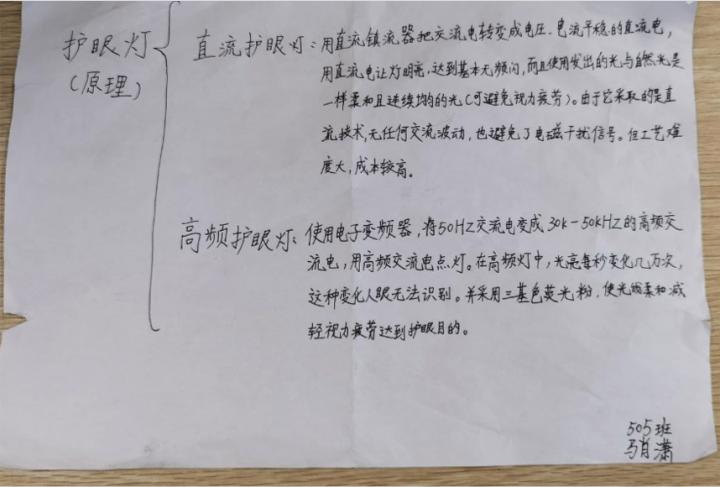 护眼灯
(原理)
直流护眼灯：用直流镇流器把交流电转变成电压、电流平稳的直流电，
用直流电让灯明亮，达到基本无频闪，而且使用发出的光与自然光是
一样柔和且连续均匀的光(可避免视力疲劳)。由于它采取的是直
流技术，无任何交流波动，也避免了电磁干扰信号。但工艺难
度大，成本较高。
高频护眼灯：使用电子变频器，将50HZ交流电变成30k-50kHZ的高频交
流电，用高频交流电点灯。在高频灯中，光亮每秒变化几万次，
这种变化人眼无法识别。并采用三基色荧光粉，使光线柔和减
轻视力疲劳达到护眼目的。
505班